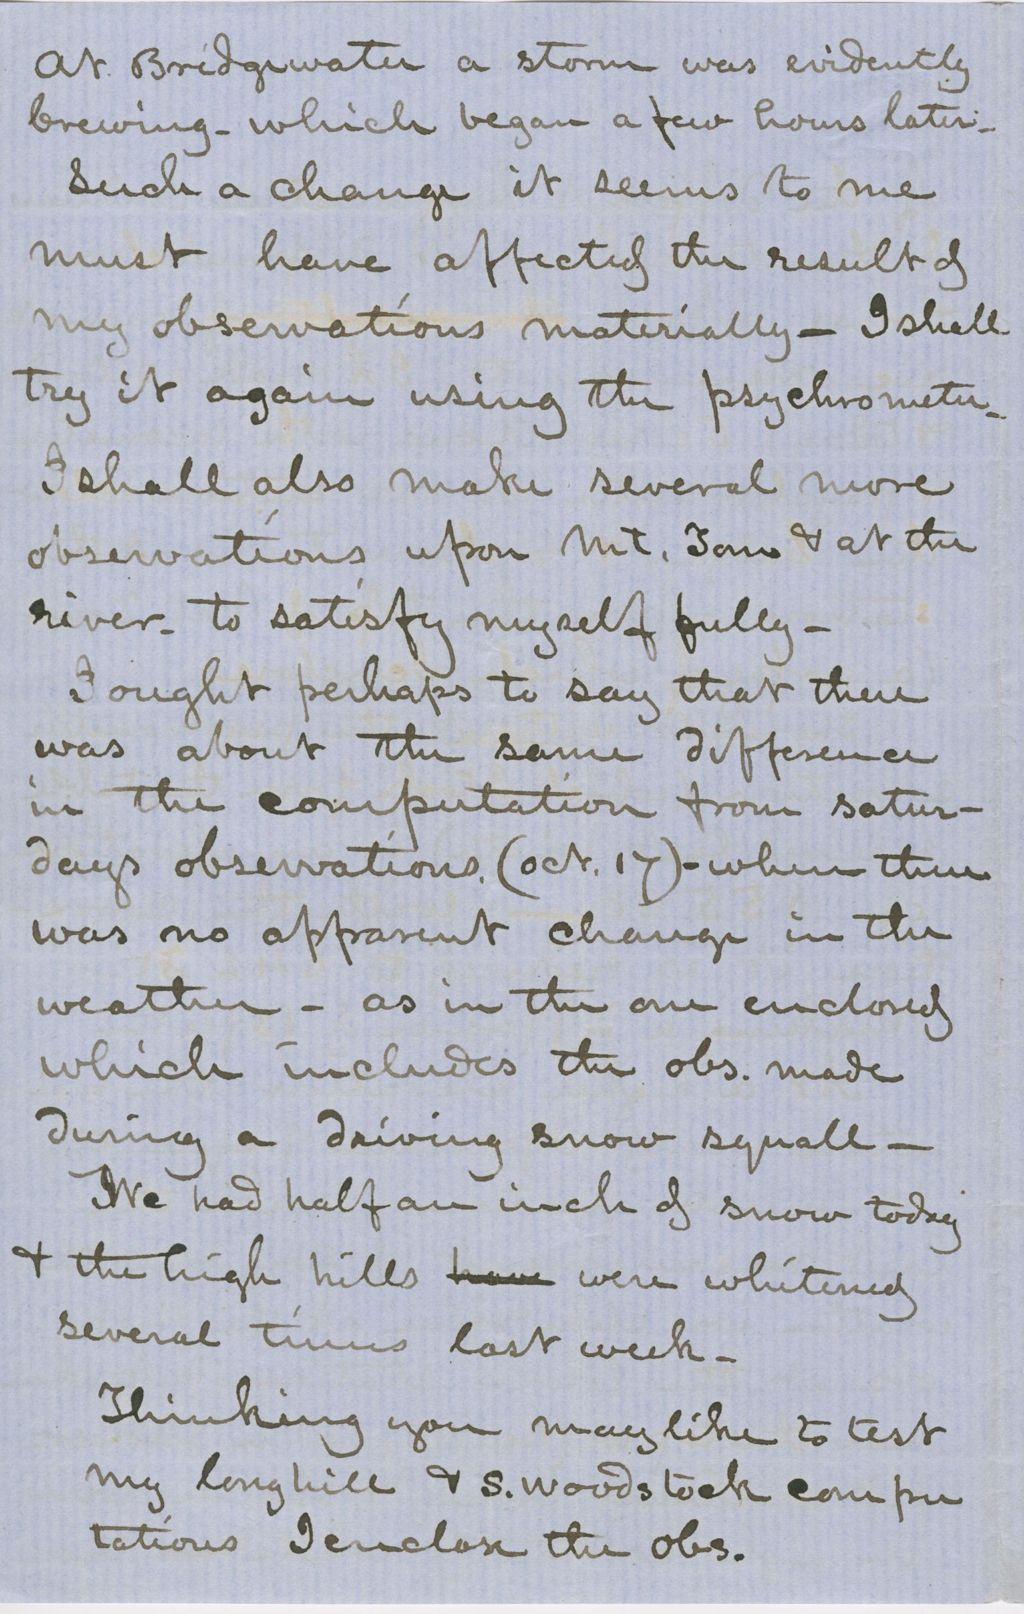 At Bridgewater a storm was evidently
brewing - which began a few hours later -
Such a change it seems to me
must have affected the result of
my observations materially - I shall
try it again using the psychrometer -
I shall also make several more
observations upon Mt. Tom & at the
river - to satisfy myself fully -
I ought perhaps to say that there
was about the same difference
in the computation from Satur-
days observations. (Oct. 17) - when there
was no apparent change in the
weather - as in the one enclosed
which includes the obs. made
during a driving snow squall -
We had half an inch of snow today
& the high hills have were whitened
several times last week -
Thinking you may like to test
my long hill & S. Woodstock compu
tations I enclose the obs.